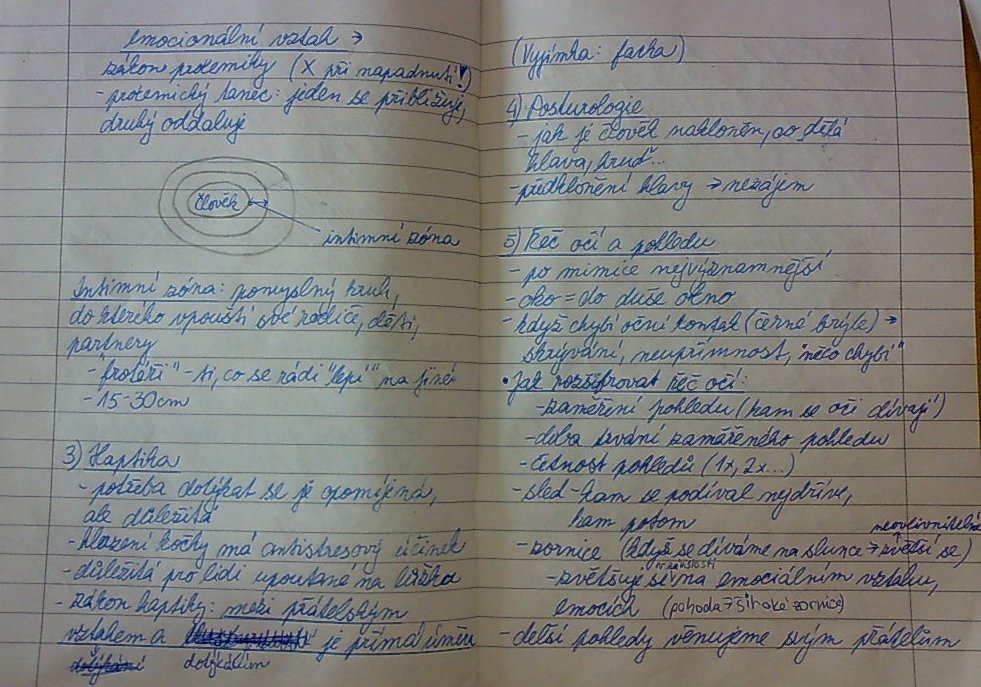 emocionální vztah →
zákon proxemiky (X při napadnutí!)
- proxemický tanec: jeden se přibližuje,
druhý oddaluje
člověk
intimní zóna
Intimní zóna: pomyslný kruh,
do kterého vpouští své rodiče, děti,
partnery
- "frotéři" - ti, co se rádi "lepí" na jiné
- 15-30cm
3) Haptika
- potřeba dotýkat se je opomíjená,
ale důležitá
- hlazení kočky má antistresový účinek
- důležitá pro lidi upoutané na lůžko
- zákon haptiky: mezi přátelským
vztahem a je přímá úměra
dotýkání dotýkáním
(Vyjímka: facka)
4) Posturologie
- jak je člověk nakloněn, co dělá
hlava, hruď...
- předklonění hlavy → nezájem
5) Řeč očí a pohledu
- po mimice nejvýznamnější
- oko = do duše okno
- když chybí oční kontak (černé brýle) →
skrývání, neupřímnost, "něco chybí"
• Jak rozšifrovat řeč očí:
- zaměření pohledu (kam se oči dívají)
- doba trvání zaměřeného pohledu
- četnost pohledů (1x, 2x...)
- sled - kam se podíval nejdříve,
kam potom
neovlivnitelné
- zornice (když se díváme na slunce → zvětší se)
- zvětšuje se v závislosti na emociálním vztahu,
emocích (pohoda → široké zornice)
- delší pohledy věnujeme svým přátelům